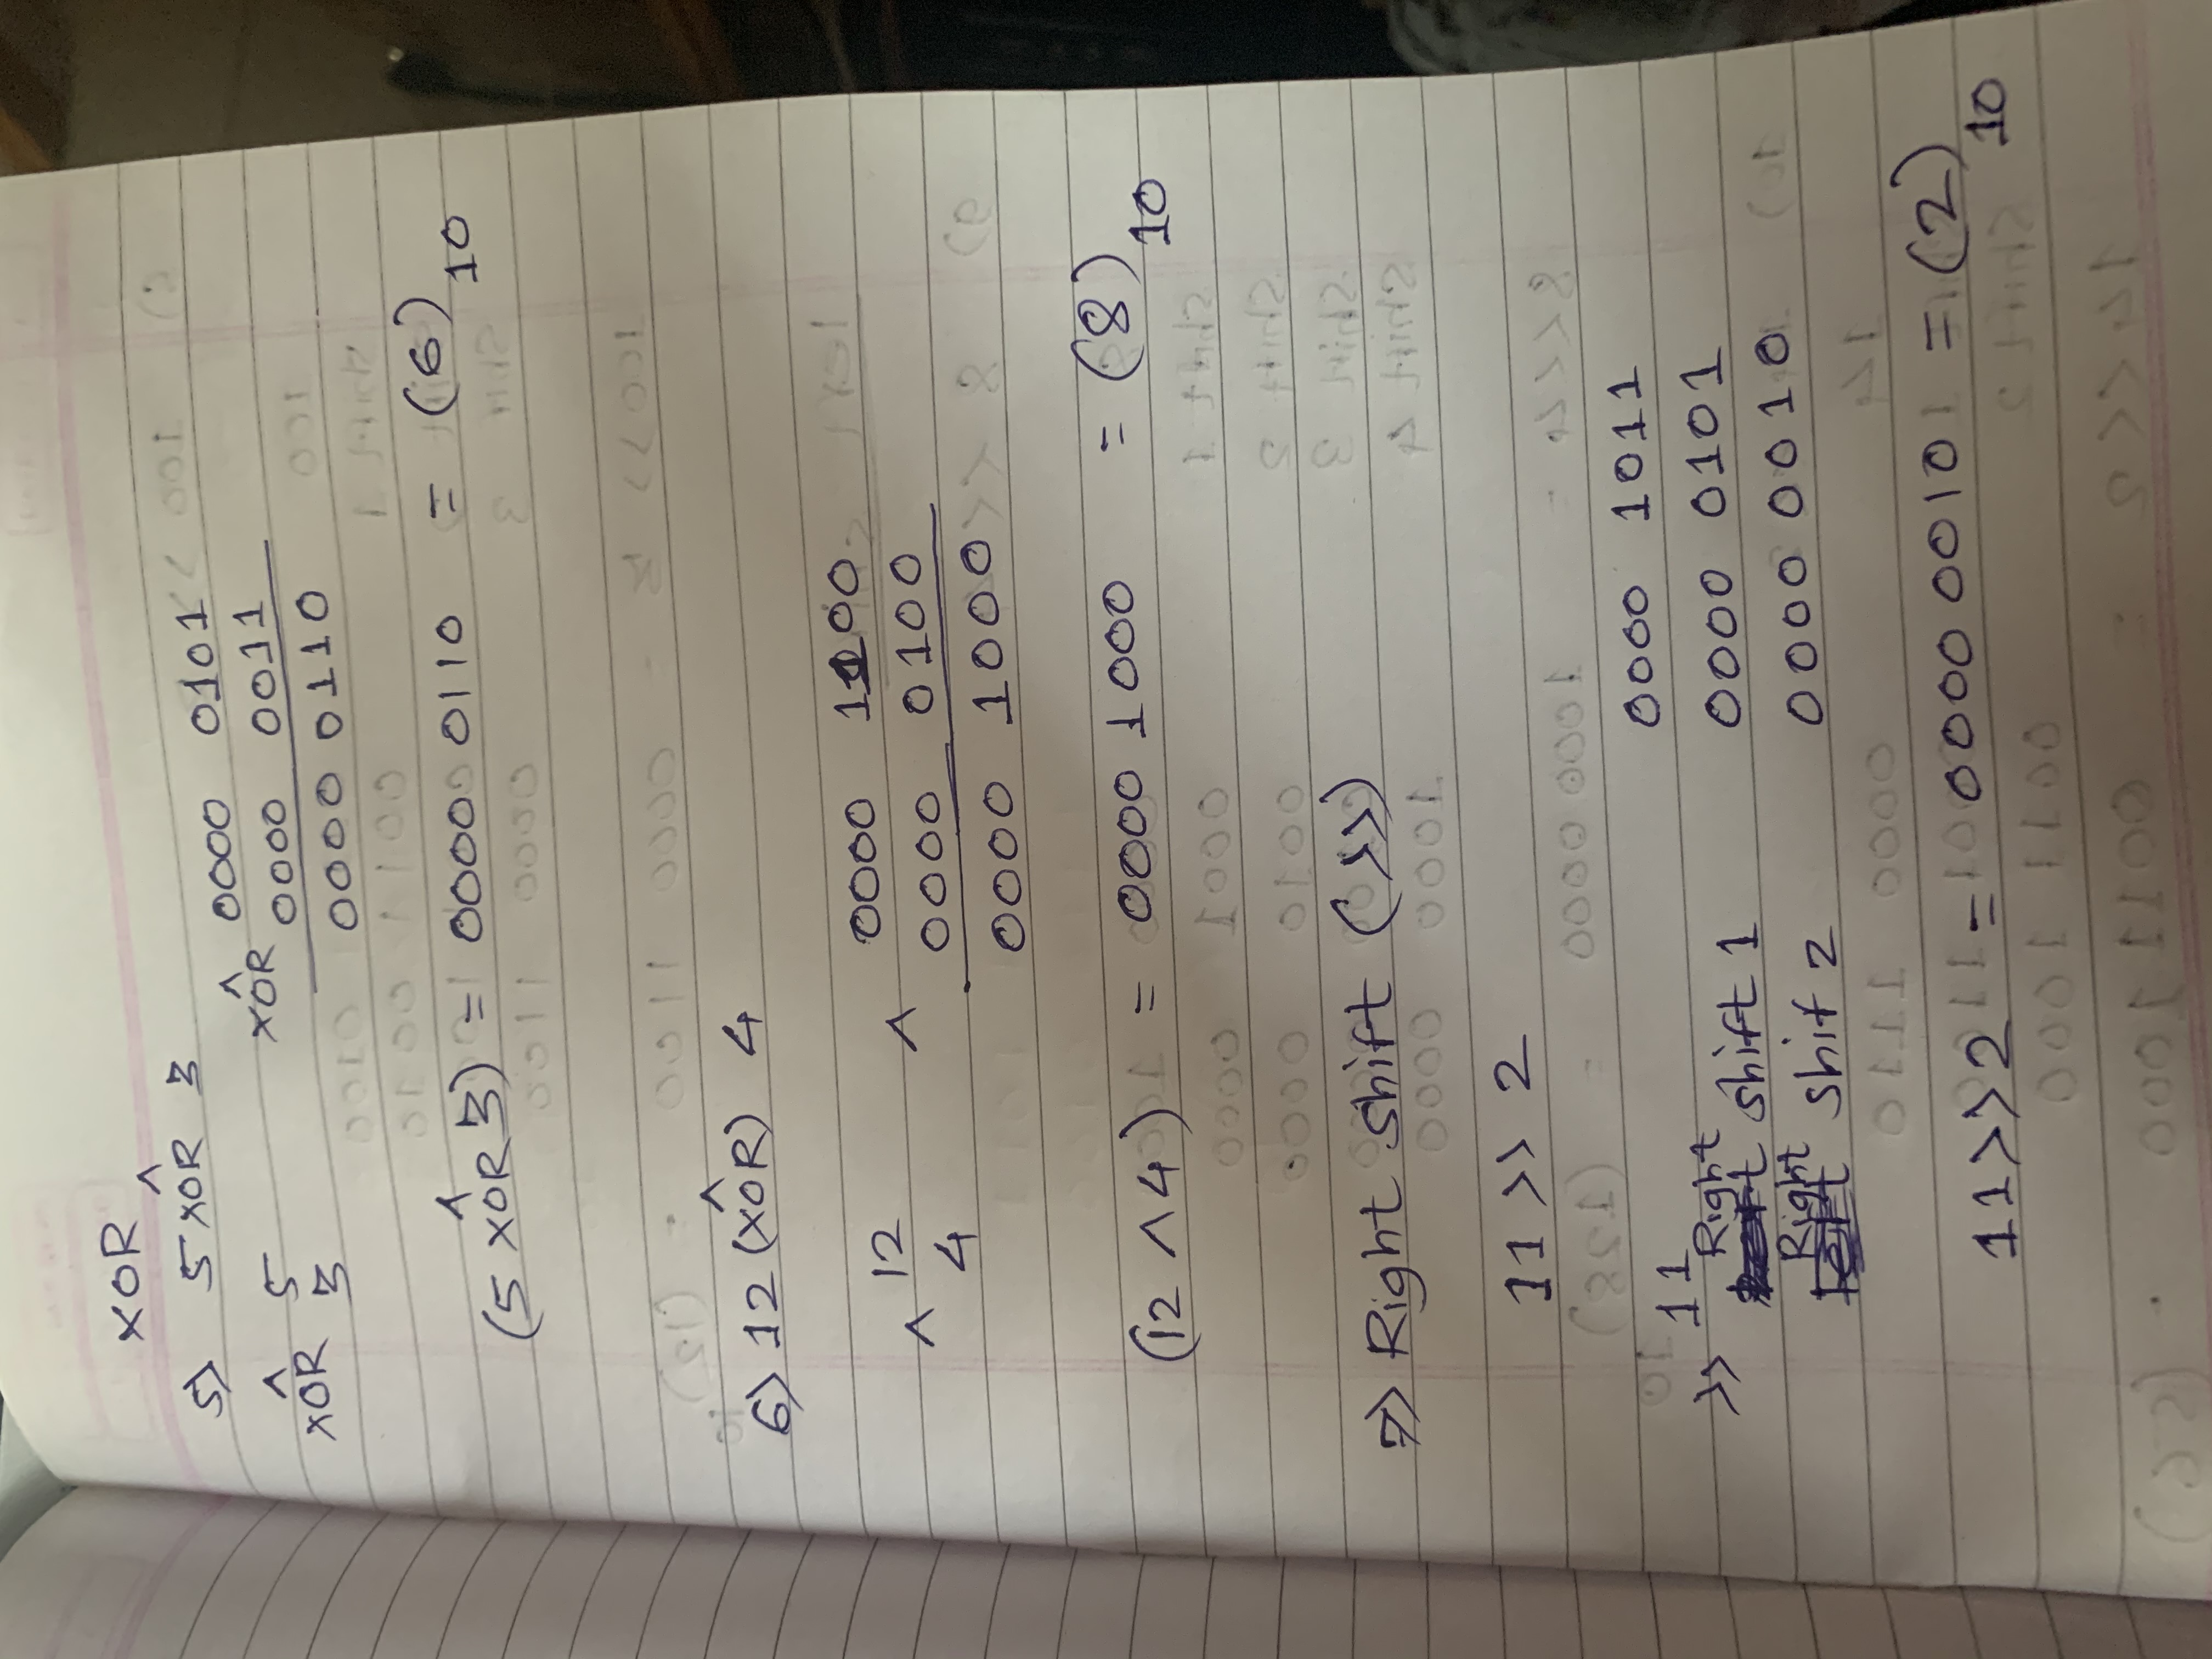 XOR
^
5) 5 XOR 3
^ 5
XOR 3
^
XOR 0000 0101
0000 0011
0000 0110
^
(5 XOR 3) = 0000 0110 = (6)10
^
6) 12 (XOR) 4
^ 12
4
^ 0000 1100
0000 0100
0000 1000
(12 ^ 4) = 0000 1000 = (8)10
7) Right shift (>>)
11 >> 2
>> 11 0000 1011
Right shift 1 0000 0101
Right shif 2 0000 0010
11>>2 = 0000 0010 = (2)10